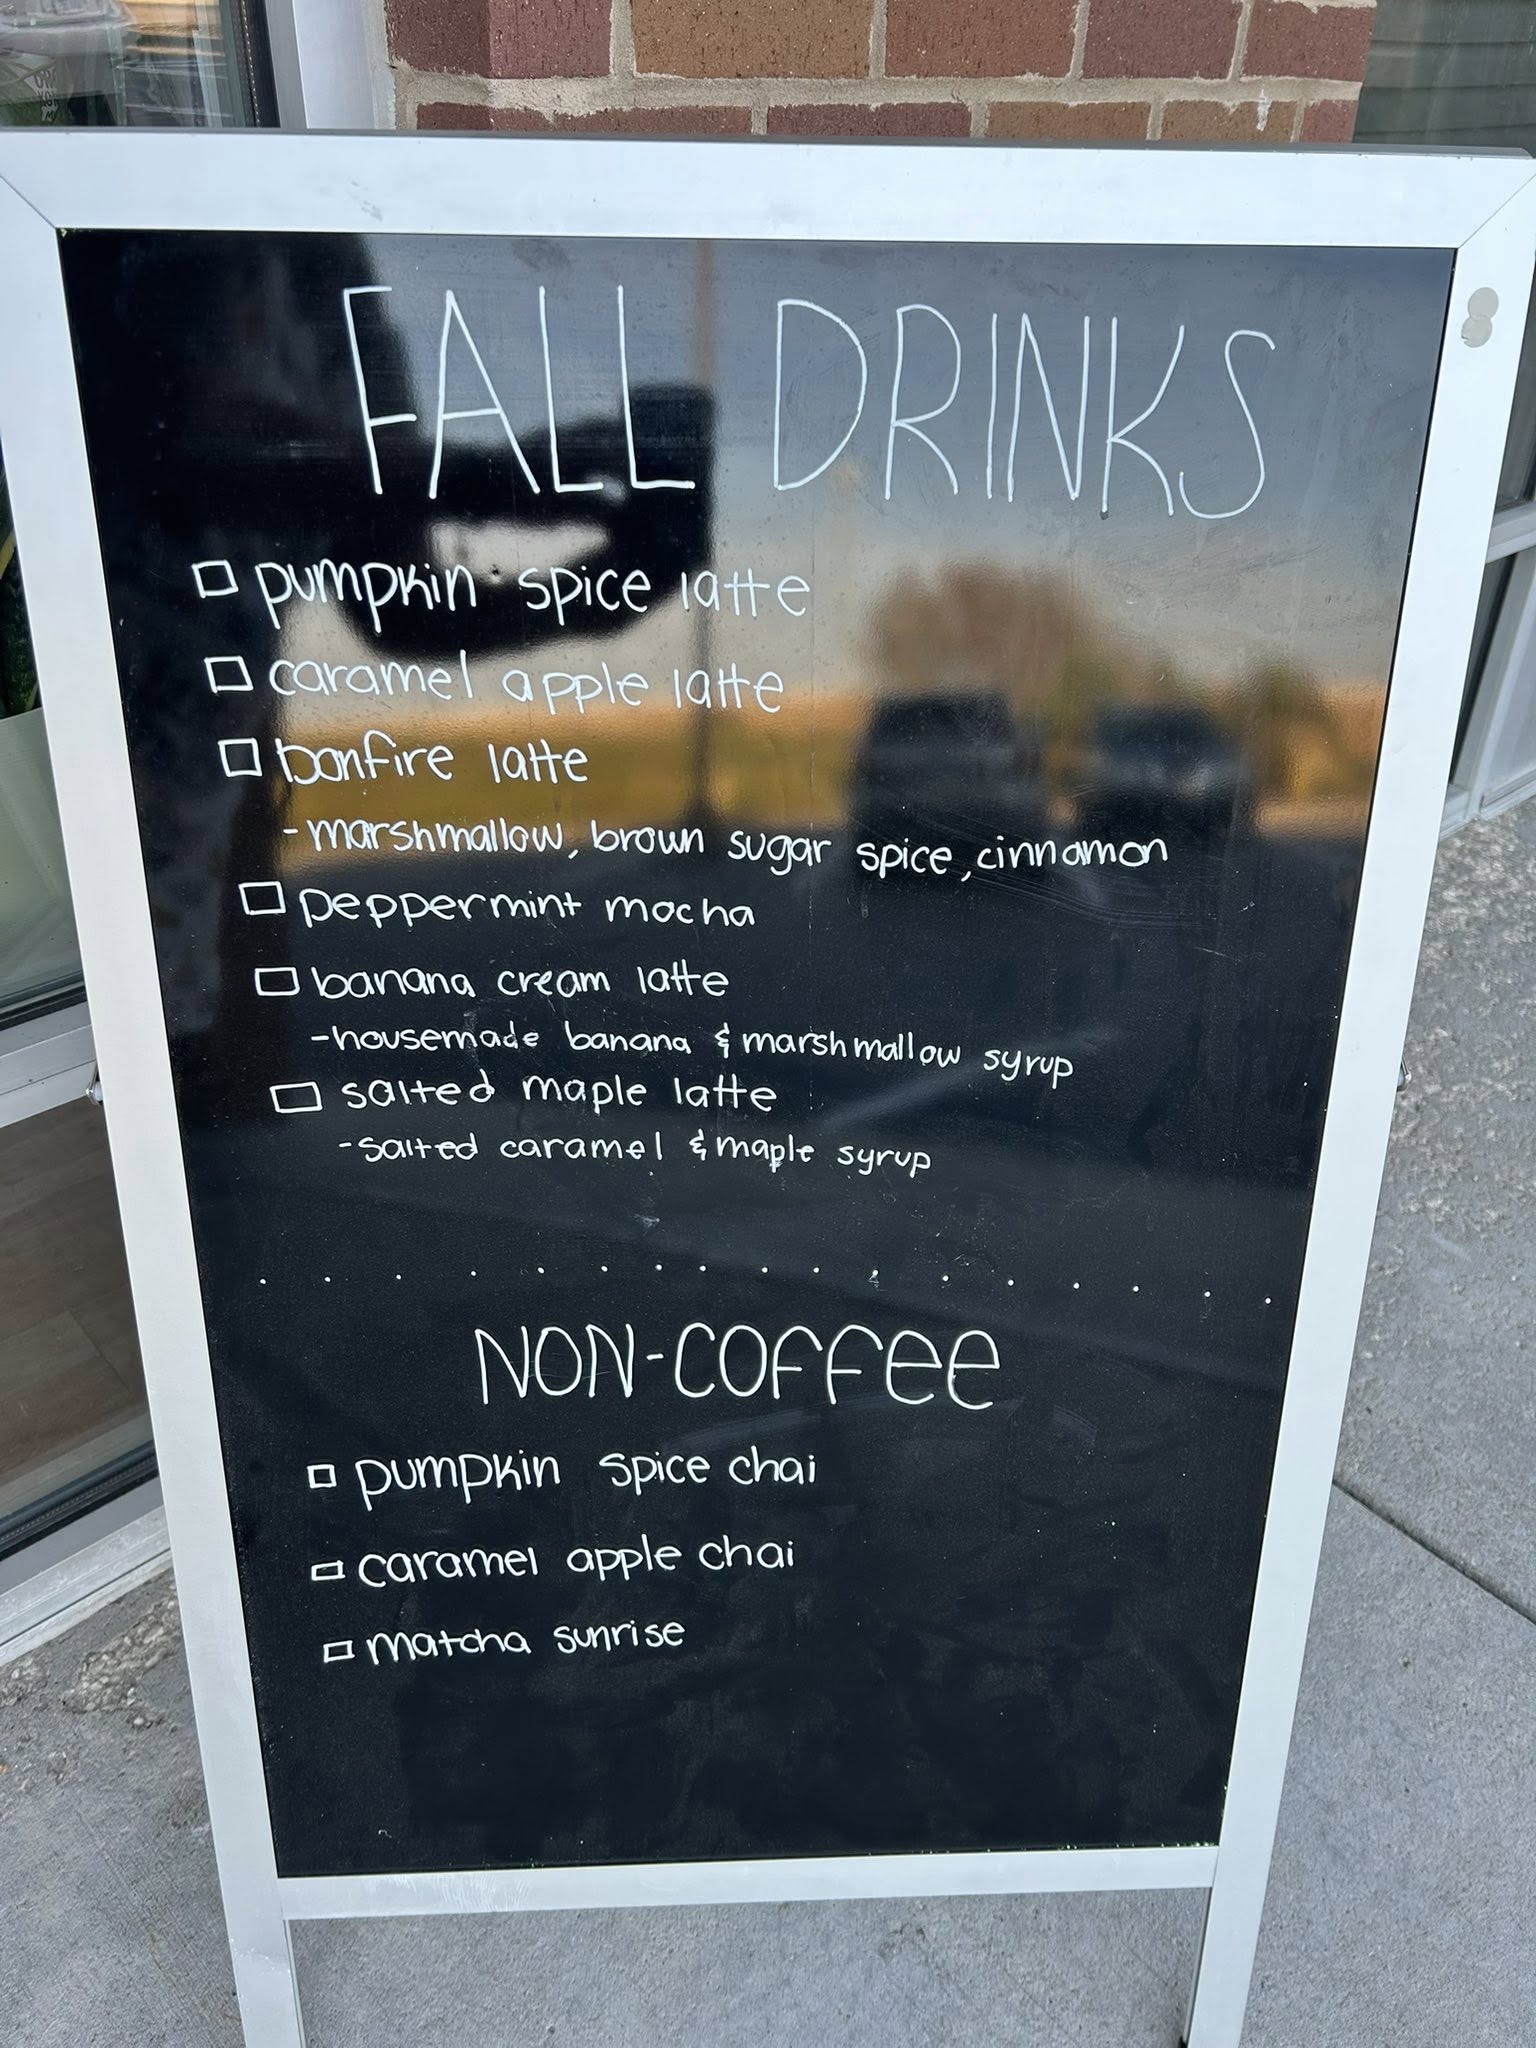 FALL DRINKS
pumpkin spice latte
caramel apple latte
bonfire latte
- marshmallow, brown sugar spice, cinnamon
peppermint mocha
banana cream latte
- housemade banana & marshmallow syrup
salted maple latte
- salted caramel & maple syrup
NON-COFFee
pumpkin spice chai
caramel apple chai
matcha sunrise